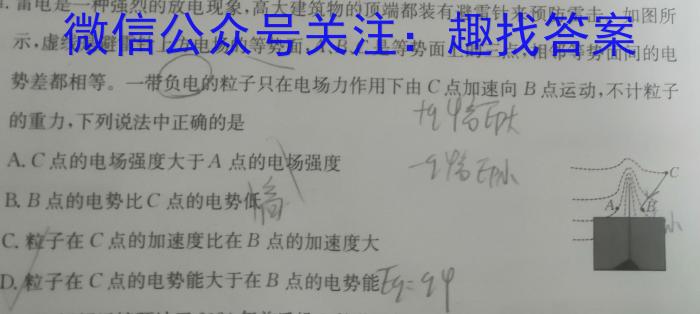 雷电是一种强烈的放电现象，高大建筑物的顶端都装有避雷针来预防雷击。如图所
微信公众号关注：趣找答案
示，虚线 等势面 是等势面上的三点，相邻等势面间的电
势差都相等。一带负电的粒子只在电场力作用下由C点加速向B点运动，不计粒子
的重力，下列说法中正确的是
+q φ高 Ep大
A. C点的电场强度大于A点的电场强度
-q φ高 Ep小
B. B点的电势比C点的电势低
高
C. 粒子在C点的加速度比在B点的加速度大
D. 粒子在C点的电势能大于在B点的电势能
Eq=qφ
C
A
B
小